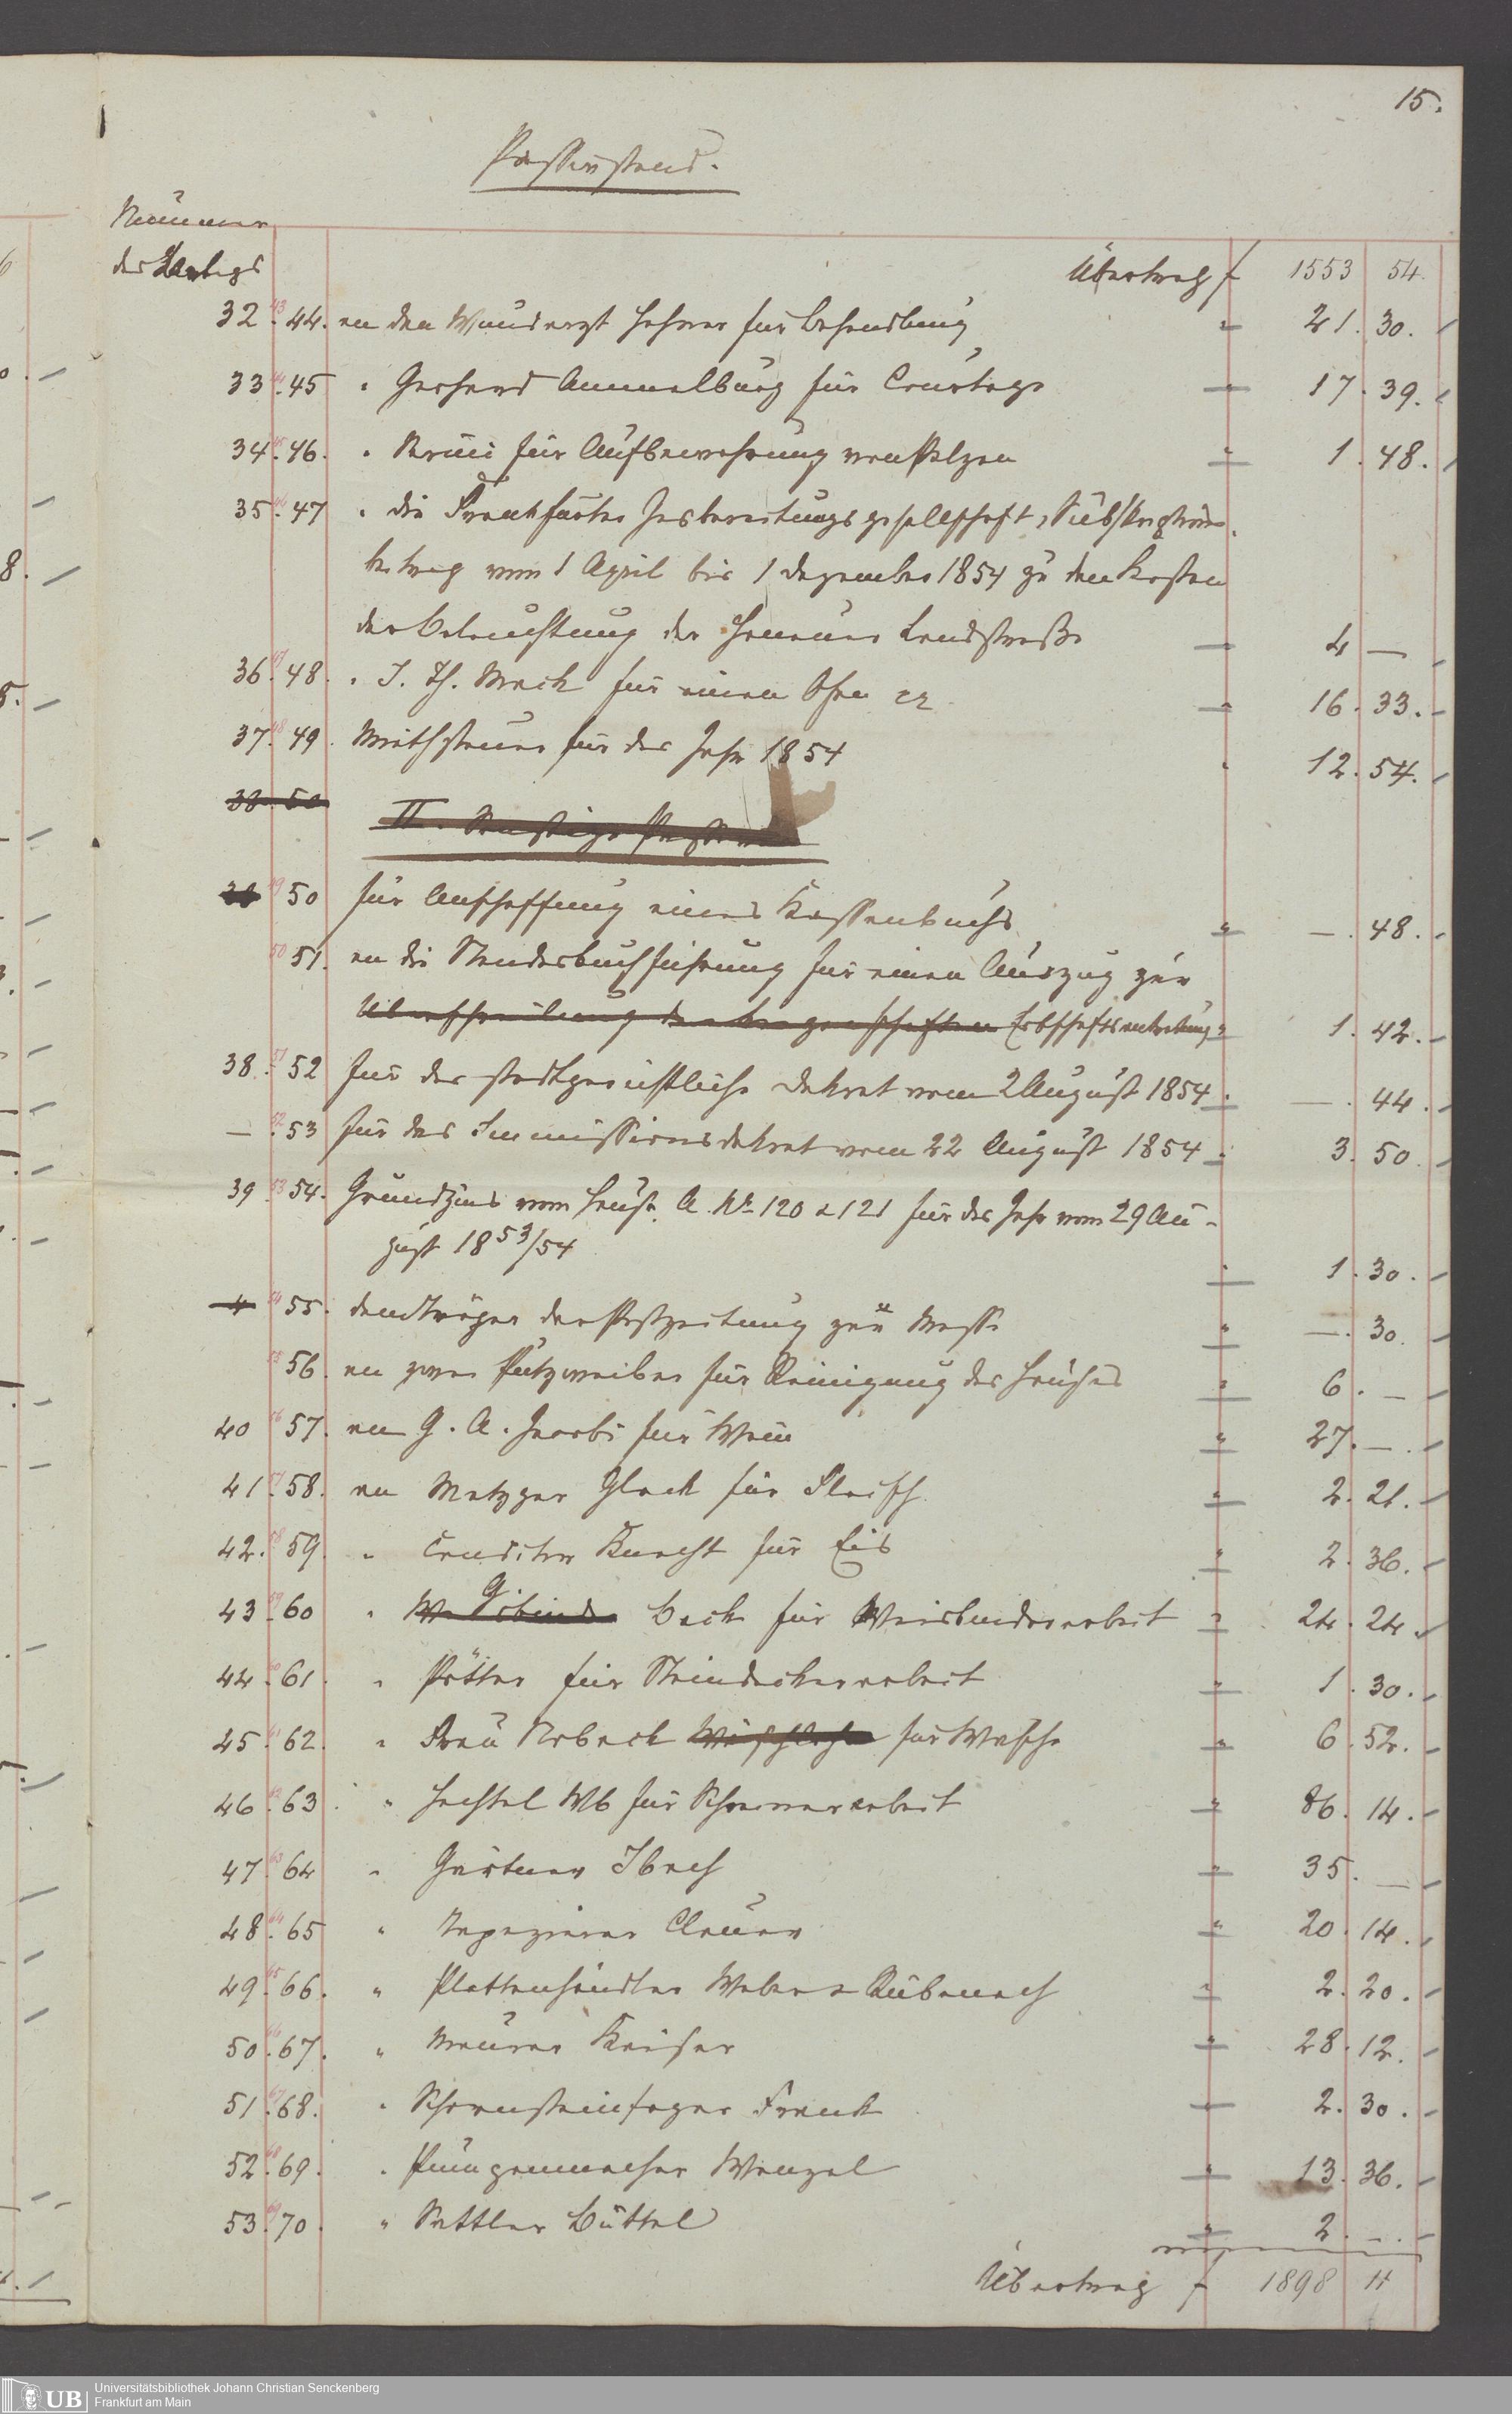 15.
Passivstand.
Nummer
des Belegs
Übertrag f 1553 54.
32 43 44. an den Wundarzt Lehrer für Behandlung " 21. 30.
33 44 45 " Gerhard Ammelburg für Courtage " 17. 39.
34 45 46. " für Aufbewahrung von Pelzen " 1. 48.
35 46 47 " die Frankfurter Gasbereitungsgesellschaft, Subskriptions-
betrag vom 1 April bis 1 Dezember 1854 zu den Kosten
der Beleuchtung der Hanauer Landstraße " 4 —
36 47 48. " J. Th. Mack für einen Ofen " 16. 33.
37 48 49. Miethsteuer für das Jahr 1854 " 12. 54.
38. 50 II. Sonstige Passiva
38 49 50 für Anschaffung eines Kassenbuchs " —. 48.
50 51. an die Standesbuchführung für einen Auszug zur
Überschreibung der Liegenschaften Erbschaftsantretung " 1. 42.
38. 51 52 für das stadtgerichtliche Dekret vom 2 August 1854 " —. 44.
— 52 53 für das Immissionsdekret vom 22 August 1854 " 3. 50.
39 53 54. Grundzins vom Hause A. No 120 & 121 für das Jahr vom 29 Au-
gust 1853/54 " 1. 30.
4 54 55. dem Träger der Postzeitung zur Messe " —. 30.
55 56. an zwei Putzweiber für Reinigung des Hauses " 6. —
40 56 57. an G. A. Jacobi für Wein " 27. —.
41 57 58. an Metzger Glock für Fleisch " 2. 21.
42. 58 59. " Conditor Knecht für Eis " 2. 36.
43 59 60 " Bach für Weisbinderarbeit " 24. 24.
44 60 61. " Pötter für Steindeckerarbeit " 1. 30.
45 61 62. " Frau Norbeck für Wäsche " 6. 52.
46 62 63. " Hechtel Wb für Schreinerarbeit " 86. 14.
47 63 64 " Gärtner Ibach " 35. —
48 64 65 " Tapezierer Clauer " 20. 14.
49 65 66. " Plattenhändler Weber & Rübenach " 2. 20.
50 66 67. " Maurer Kaiser " 28. 12.
51 67 68. " Schornsteinfeger Frank " 2. 30.
52 68 69. " Pumpenmacher Wenzel " 13. 36.
53 69 70. " Sattler Büttel " 2. —.
Übertrag f 1898 11
UB Universitätsbibliothek Johann Christian Senckenberg
Frankfurt am Main